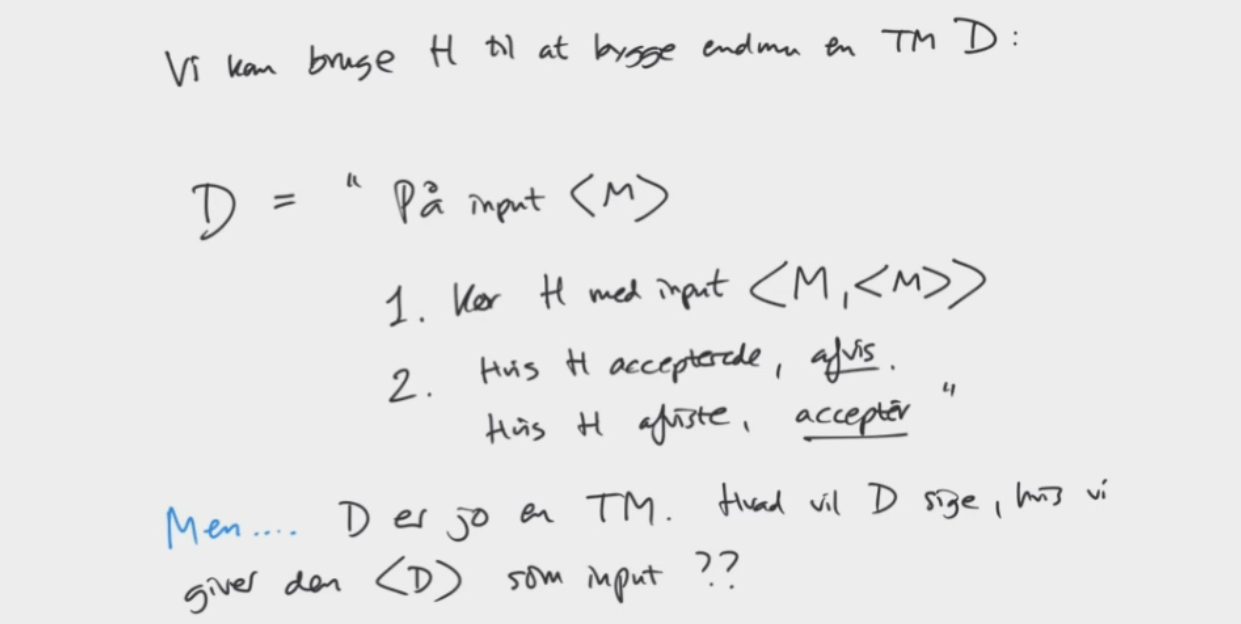 Vi kan bruge H til at bygge endnu en TM D:
D = " På input <M>
1. Kør H med input <M,<M>>
2. Hvis H accepterede, afvis.
Hvis H afviste, acceptér "
Men.... D er jo en TM. Hvad vil D sige, hvis vi
giver den <D> som input ??